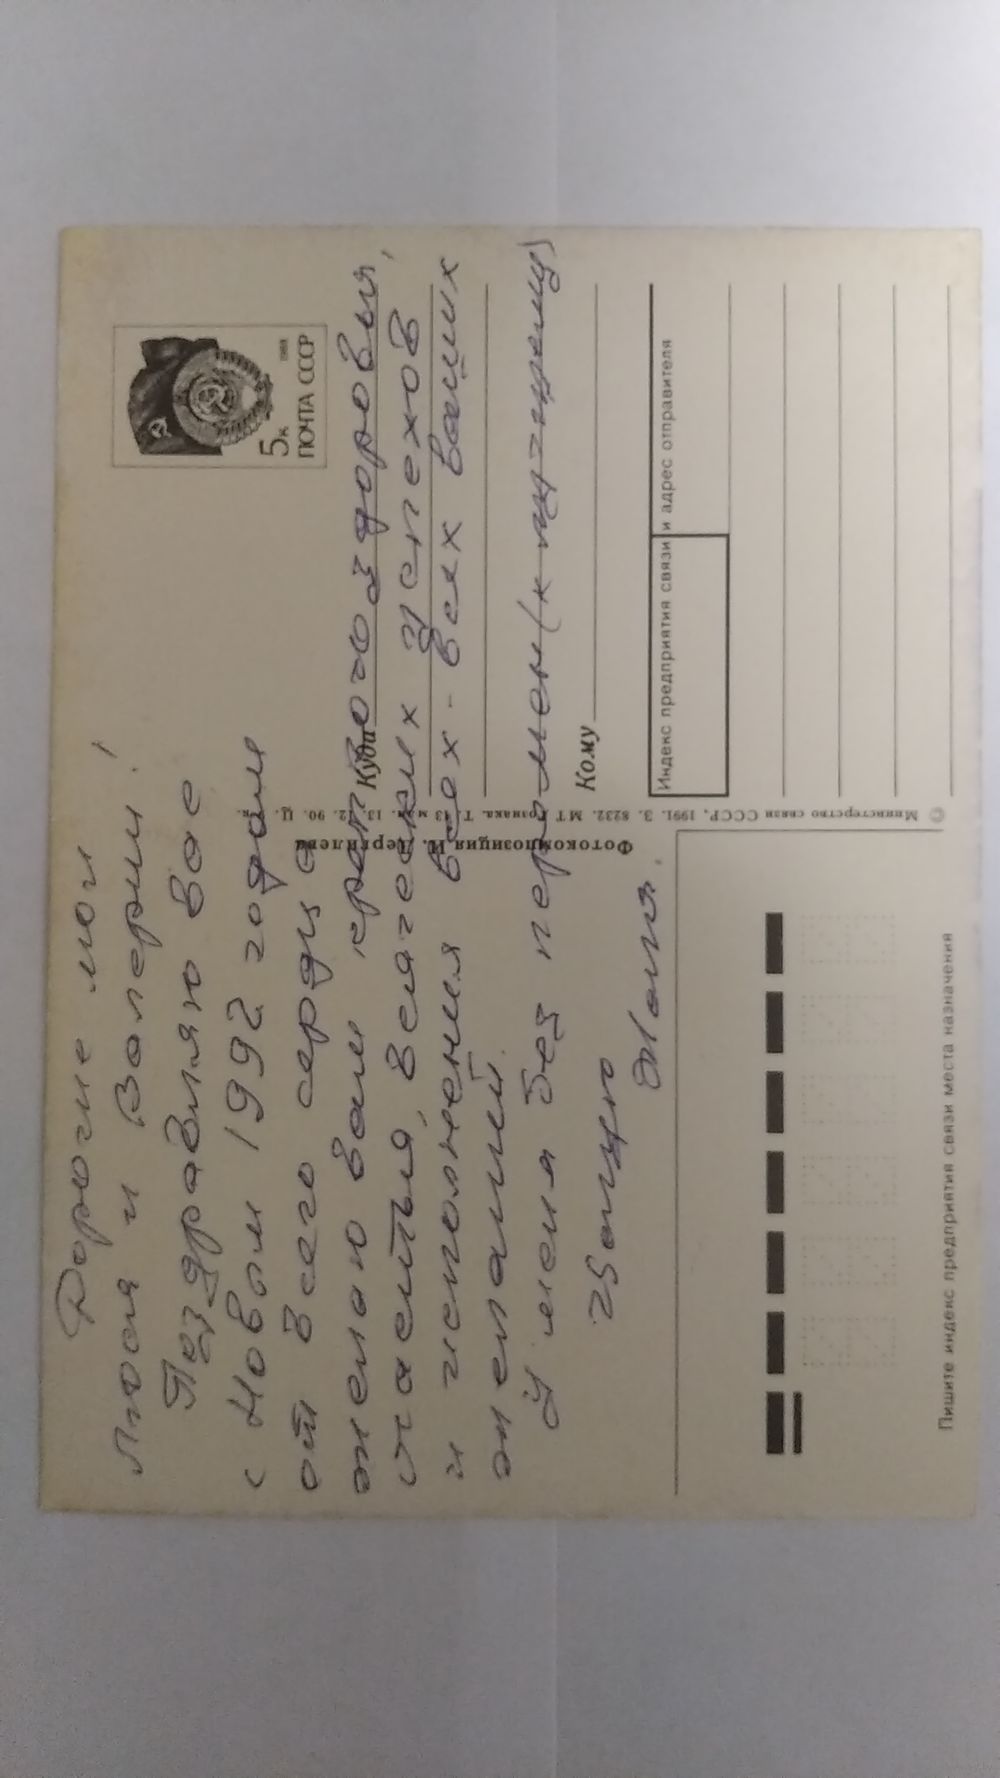 Дорогие мои
Люся и Валерий!
Поздравляю вас
с Новым 1992 годом
от всего сердца
желаю вам крепкого здоровья,
счастья, всяческих успехов
и исполнения всех-всех ваших
желаний.
У меня без перемен (к
Целую
5к
1988
ПОЧТА СССР
Куда
Кому
Индекс предприятия связи и адрес отправителя
© Министерство связи СССР, 1991. З. 8232. МТ Гознака. Т. 13 млн. 13. 12. 90. Ц.
Фотокомпозиция И. Дергилева
Пишите индекс предприятия связи места назначения